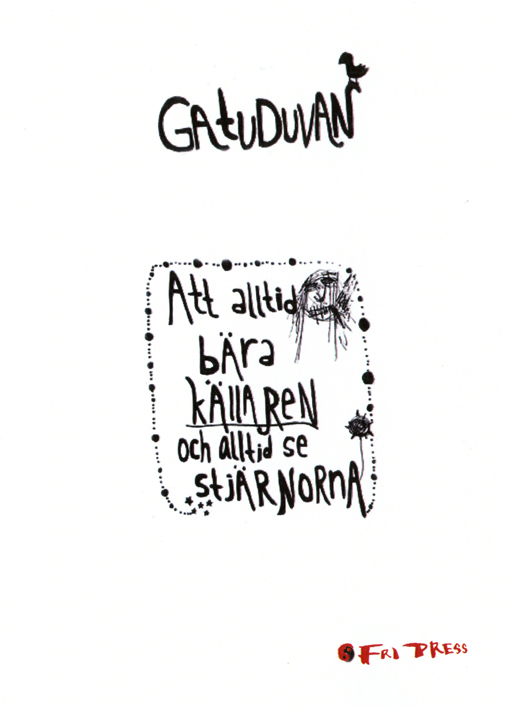 GAtUDUVAN
Att alltid
bÄra
kÄllAReN
och alltid se
stjÄRNORNA
FRI PRESS